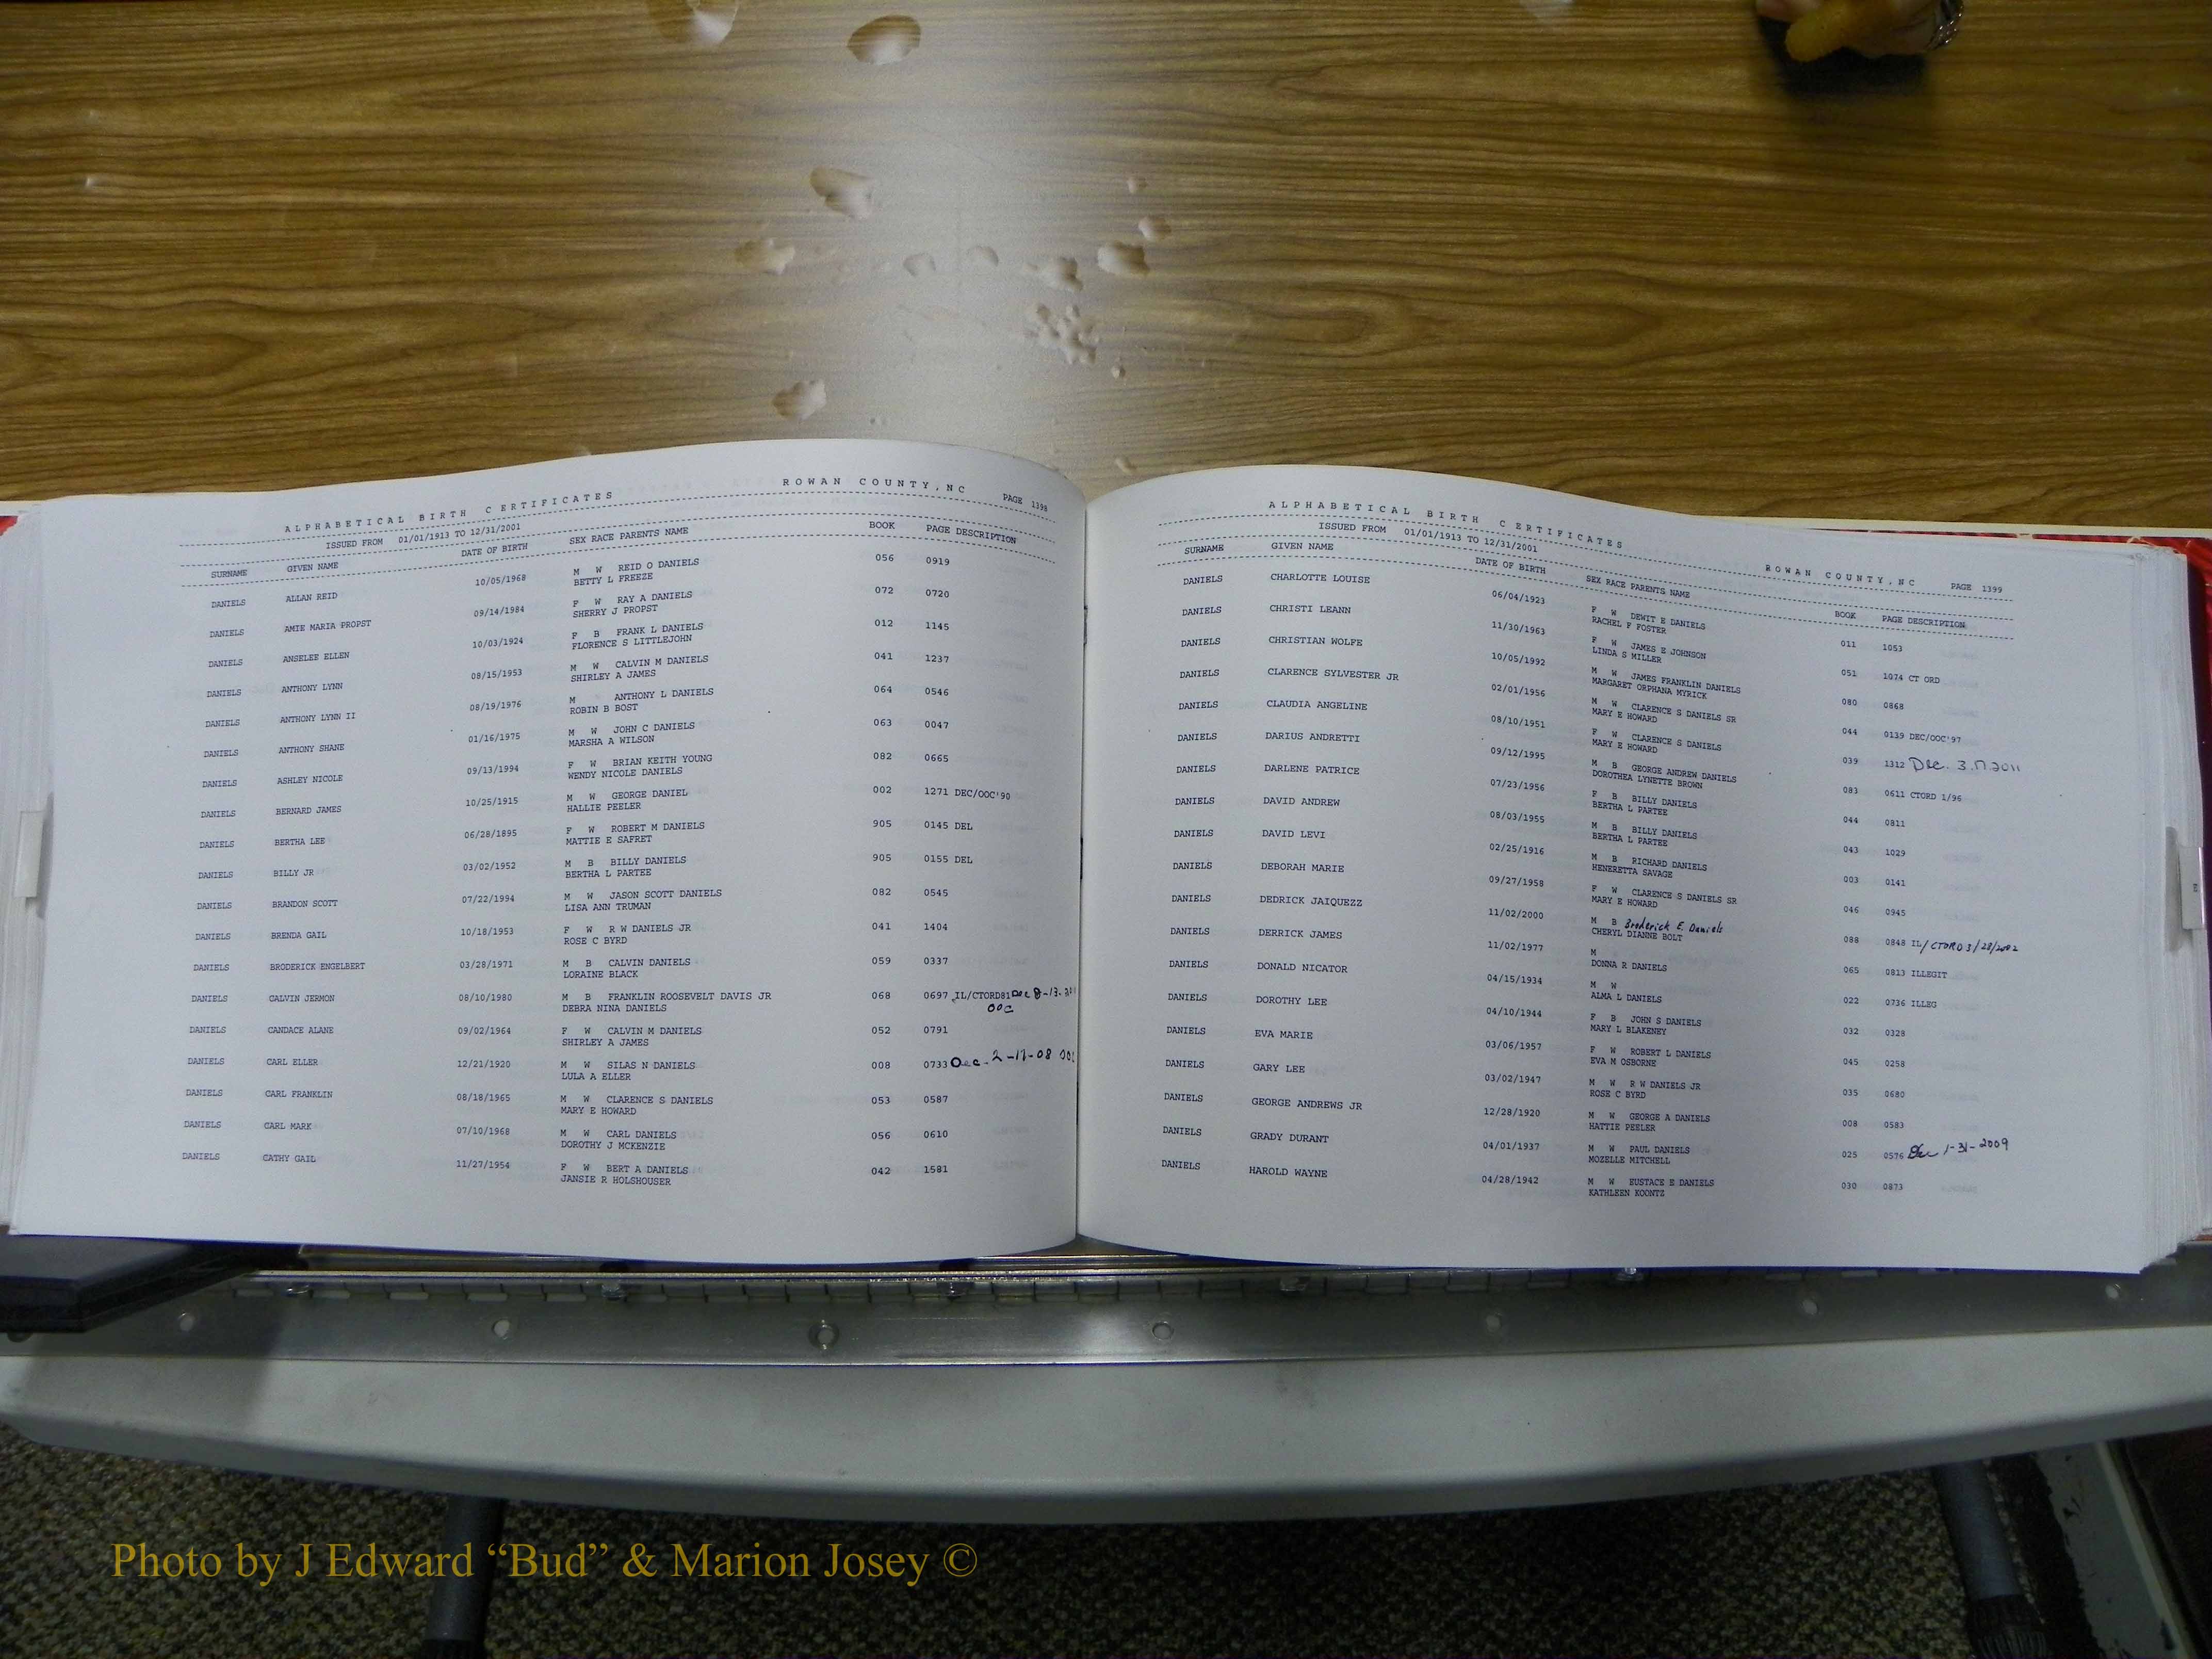 ALPHABETICAL BIRTH CERTIFICATES ROWAN COUNTY, NC PAGE 1398
ISSUED FROM 01/01/1913 TO 12/31/2001
SURNAME GIVEN NAME DATE OF BIRTH SEX RACE PARENTS NAME BOOK PAGE DESCRIPTION
DANIELS ALLAN REID 10/05/1968 M W REID O DANIELS 056 0919
BETTY L FREEZE
DANIELS AMIE MARIA PROPST 09/14/1984 F W RAY A DANIELS 072 0720
SHERRY J PROPST
DANIELS ANSELEE ELLEN 10/03/1924 F B FRANK L DANIELS 012 1145
FLORENCE S LITTLEJOHN
DANIELS ANTHONY LYNN 08/15/1953 M W CALVIN M DANIELS 041 1237
SHIRLEY A JAMES
DANIELS ANTHONY LYNN II 08/19/1976 M ANTHONY L DANIELS 064 0546
ROBIN B BOST
DANIELS ANTHONY SHANE 01/16/1975 M W JOHN C DANIELS 063 0047
MARSHA A WILSON
DANIELS ASHLEY NICOLE 09/13/1994 F W BRIAN KEITH YOUNG 082 0665
WENDY NICOLE DANIELS
DANIELS BERNARD JAMES 10/25/1915 M W GEORGE DANIEL 002 1271 DEC/OOC'90
HALLIE PEELER
DANIELS BERTHA LEE 06/28/1895 F W ROBERT M DANIELS 905 0145 DEL
MATTIE E SAFRET
DANIELS BILLY JR 03/02/1952 M B BILLY DANIELS 905 0155 DEL
BERTHA L PARTEE
DANIELS BRANDON SCOTT 07/22/1994 M W JASON SCOTT DANIELS 082 0545
LISA ANN TRUMAN
DANIELS BRENDA GAIL 10/18/1953 F W R W DANIELS JR 041 1404
ROSE C BYRD
DANIELS BRODERICK ENGELBERT 03/28/1971 M B CALVIN DANIELS 059 0337
LORAINE BLACK
DANIELS CALVIN JERMON 08/10/1980 M B FRANKLIN ROOSEVELT DAVIS JR 068 0697 IL/CTORD81 Dec 8-13-
DEBRA NINA DANIELS OOC
DANIELS CANDACE ALANE 09/02/1964 F W CALVIN M DANIELS 052 0791
SHIRLEY A JAMES
DANIELS CARL ELLER 12/21/1920 M W SILAS N DANIELS 008 0733 Dec-2-17-08 OOC
LULA A ELLER
DANIELS CARL FRANKLIN 08/18/1965 M W CLARENCE S DANIELS 053 0587
MARY E HOWARD
DANIELS CARL MARK 07/10/1968 M W CARL DANIELS 056 0610
DOROTHY J MCKENZIE
DANIELS CATHY GAIL 11/27/1954 F W BERT A DANIELS 042 1581
JANSIE R HOLSHOUSER
ALPHABETICAL BIRTH CERTIFICATES ROWAN COUNTY, NC PAGE 1399
ISSUED FROM 01/01/1913 TO 12/31/2001
SURNAME GIVEN NAME DATE OF BIRTH SEX RACE PARENTS NAME BOOK PAGE DESCRIPTION
DANIELS CHARLOTTE LOUISE 06/04/1923 F W DEWIT E DANIELS 011 1053
RACHEL F FOSTER
DANIELS CHRISTI LEANN 11/30/1963 F W JAMES E JOHNSON 051 1074 CT ORD
LINDA S MILLER
DANIELS CHRISTIAN WOLFE 10/05/1992 M W JAMES FRANKLIN DANIELS 080 0868
MARGARET ORPHANA MYRICK
DANIELS CLARENCE SYLVESTER JR 02/01/1956 M W CLARENCE S DANIELS SR 044 0139 DEC/OOC'97
MARY E HOWARD
DANIELS CLAUDIA ANGELINE 08/10/1951 F W CLARENCE S DANIELS 039 1312 Dec. 3.17.2011
MARY E HOWARD
DANIELS DARIUS ANDRETTI 09/12/1995 M B GEORGE ANDREW DANIELS 083 0611 CTORD 1/96
DOROTHEA LYNETTE BROWN
DANIELS DARLENE PATRICE 07/23/1956 F B BILLY DANIELS 044 0811
BERTHA L PARTEE
DANIELS DAVID ANDREW 08/03/1955 M B BILLY DANIELS 043 1029
BERTHA L PARTEE
DANIELS DAVID LEVI 02/25/1916 M B RICHARD DANIELS 003 0141
HENERETTA SAVAGE
DANIELS DEBORAH MARIE 09/27/1958 F W CLARENCE S DANIELS SR 046 0945
MARY E HOWARD
DANIELS DEDRICK JAIQUEZZ 11/02/2000 M B Broderick E. Daniels 088 0848 IL/CTORD 3/28/2002
CHERYL DIANNE BOLT
DANIELS DERRICK JAMES 11/02/1977 M 065 0813 ILLEGIT
DONNA R DANIELS
DANIELS DONALD NICATOR 04/15/1934 M W 022 0736 ILLEG
ALMA L DANIELS
DANIELS DOROTHY LEE 04/10/1944 F B JOHN S DANIELS 032 0328
MARY L BLAKENEY
DANIELS EVA MARIE 03/06/1957 F W ROBERT L DANIELS 045 0258
EVA M OSBORNE
DANIELS GARY LEE 03/02/1947 M W R W DANIELS JR 035 0680
ROSE C BYRD
DANIELS GEORGE ANDREWS JR 12/28/1920 M W GEORGE A DANIELS 008 0583
HATTIE PEELER
DANIELS GRADY DURANT 04/01/1937 M W PAUL DANIELS 025 0576 Dec 1-31-2009
MOZELLE MITCHELL
DANIELS HAROLD WAYNE 04/28/1942 M W EUSTACE E DANIELS 030 0873
KATHLEEN KOONTZ
Photo by J Edward “Bud” & Marion Josey ©